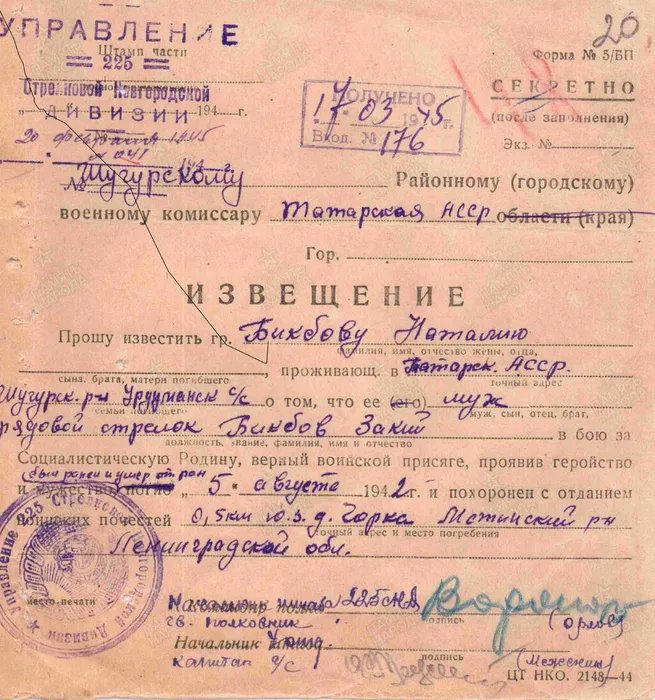 УПРАВЛЕНИЕ
20
Штамп части
Форма № 5/БП
225
Стрелковой Новгородской
ДИВИЗИИ
194 г.
ПОЛУЧЕНО
17 03 1945 г.
Вход. № 176
СЕКРЕТНО
(после заполнения)
Экз. №
20 февраля 1945
№ 041
№
Шугурскому Районному (городскому)
военному комиссару Татарская АССР области (края)
Гор.
ИЗВЕЩЕНИЕ
Прошу известить гр. Бикбову Наталию
фамилия, имя, отчество жены, отца,
проживающ. в Татарск. АССР.
сына, брата, матери погибшего
точный адрес
Шугурск. р-н с/с о том, что ее (его) муж
семьи
муж, сын, отец, брат,
рядовой стрелок Бикбов Закий в бою за
должность, звание, фамилия, имя и отчество
Социалистическую Родину, верный воинской присяге, проявив геройство
был ранен и умер от ран
и мужество, погиб "5" августа 1942 г. и похоронен с отданием
воинских почестей 0,5 км ю.з. д. Горка р-н
точный адрес и место погребения
Ленинградской обл.
Управление 225 Стрелковой Новгородской Дивизии
место печати
225 СНД
гв. полковник
подпись
(Орлов)
Начальник
капитан а/с
подпись
ЦТ НКО. 2148—44